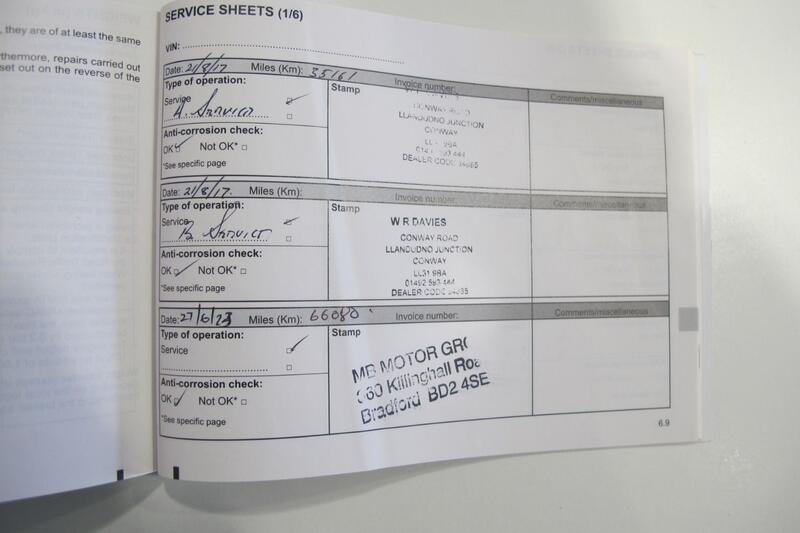 , they are of at least the same
thermore, repairs carried out
set out on the reverse of the
SERVICE SHEETS (1/6)
VIN:
Date: 21/8/17 Miles (Km): 35161 Invoice number:
Type of operation: Stamp Comments/miscellaneous
Service
A. SERVICE
Anti-corrosion check:
OK Not OK*
*See specific page
CONWAY ROAD
LLANDUDNO JUNCTION
CONWAY
LL31 9BA
DEALER CODE
Date: 21/8/17. Miles (Km): Invoice number: Comments/miscellaneous
Type of operation: Stamp
Service
B SERVICE
Anti-corrosion check:
OK Not OK*
*See specific page
W R DAVIES
CONWAY ROAD
LLANDUDNO JUNCTION
CONWAY
LL31 9BA
01492 593 444
DEALER CODE
Date: 27/6/23 Miles (Km): 66080 Invoice number: Comments/miscellaneous
Type of operation: Stamp
Service
Anti-corrosion check:
OK Not OK*
*See specific page
MB MOTOR GRO
360 Killinghall Roa
Bradford BD2 4SE
6.9